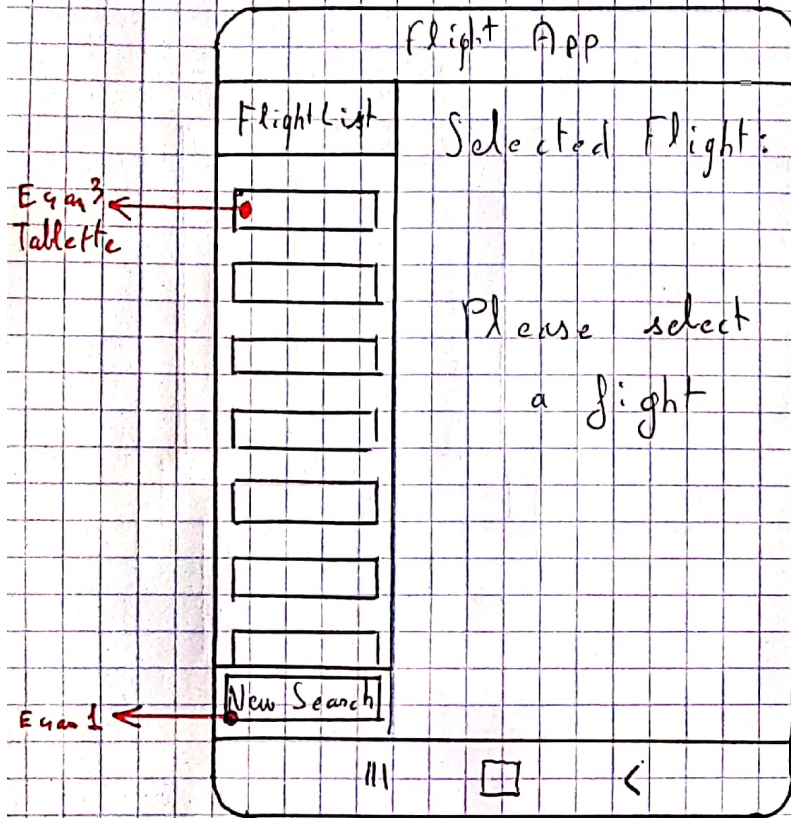 Flight App
Flight List
Selected Flight:
Ecran 3
Tablette
Please select
a flight
New Search
Ecran 1